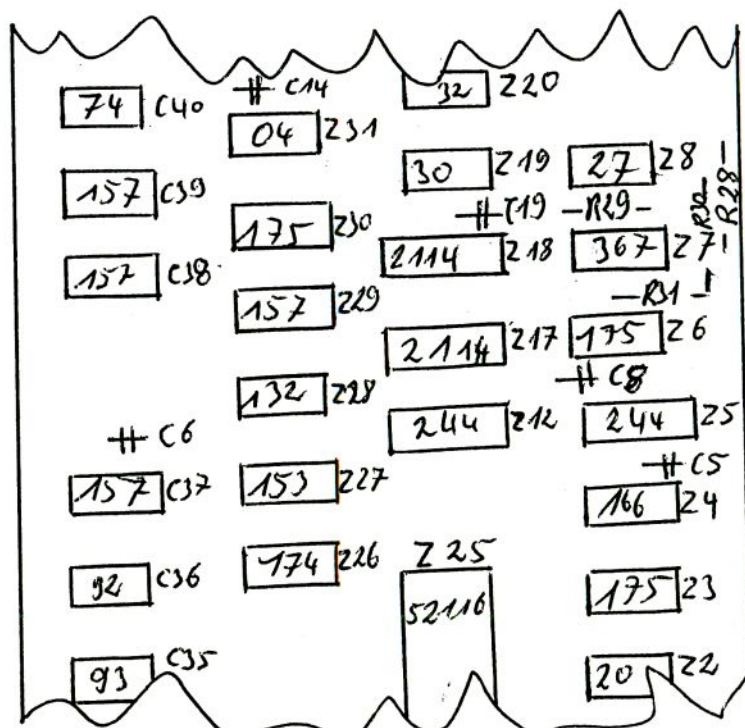 74 C40
157 C39
157 C38
C6
157 C37
92 C36
93 C35
C14
04 Z31
175 Z30
157 Z29
132 Z28
153 Z27
174 Z26
32 Z20
30 Z19
C19
2114 Z18
2114 Z17
244 Z12
Z 25
52116
27 Z8
R29
R30
R28
367 Z7
R31
175 Z6
C8
244 Z5
C5
166 Z4
175 Z3
20 Z2